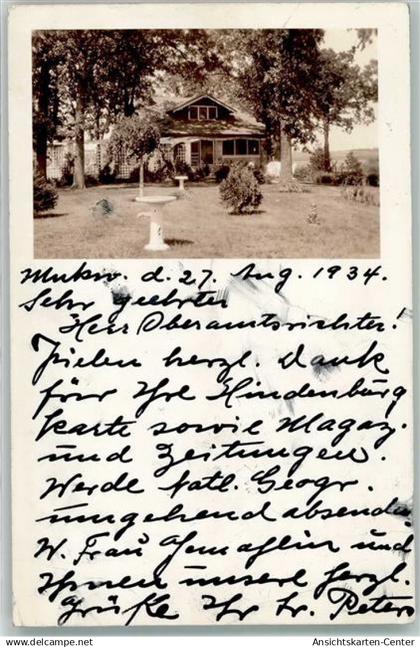 Mukw. d. 27. Aug. 1934.
Sehr geehrter
Herr Oberamtsrichter!
Vielen herzl. Dank
für Ihre Hindenburg
karte sowie Magaz.
und Zeitungen.
Werde Natl. Geogr.
umgehend absenden
W. Frau Gemahlin und
Ihnen unsere herzl.
Grüße Ihr Fr. Peter
Ansichtskarten-Center.de